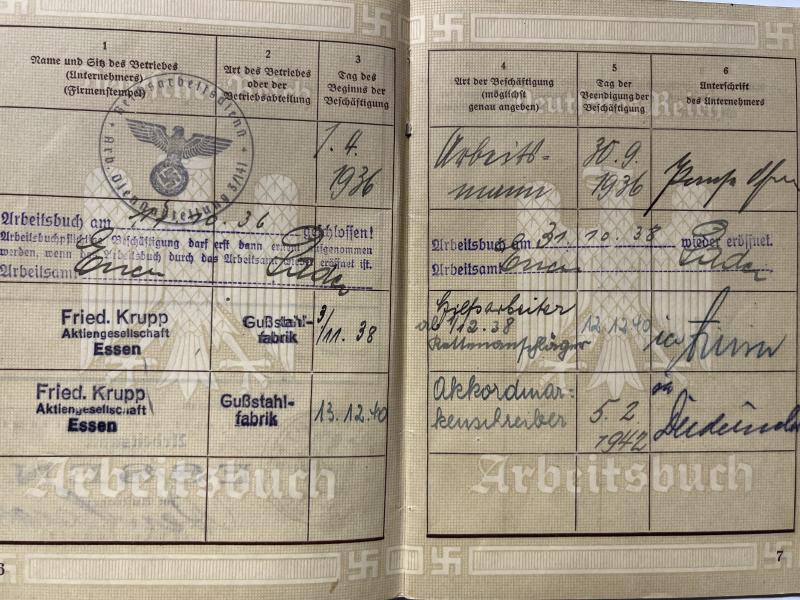 1
Name und Sitz des Betriebes
(Unternehmers)
(Firmenstempel)
2
Art des Betriebes
oder der
Betriebsabteilung
3
Tag des
Beginns der
Beschäftigung
Reichsarbeitsdienst
1.4.
1936
Arbeitsbuch am 36 geschlossen!
Arbeitsbuchpflichtige Beschäftigung darf erst dann erneut aufgenommen
werden, wenn das Arbeitsbuch durch das Arbeitsamt wieder eröffnet ist.
Arbeitsamt Essen
Fried. Krupp
Aktiengesellschaft
Essen
Gußstahl-
fabrik
3/11. 38
Fried. Krupp
Aktiengesellschaft
Essen
Gußstahl-
fabrik
13.12.40
Arbeitsbuch
6
4
Art der Beschäftigung
(möglichst
genau angeben)
5
Tag der
Beendigung der
Beschäftigung
6
Unterschrift
des Unternehmers
Deutsches Reich
Arbeits-
mann
30.9.
1936
Arbeitsbuch am 31. 10. 38 wieder eröffnet.
Arbeitsamt Essen
Hilfsarbeiter
ab 1/12.38
Kettenanschläger
12.12.40
Akkordmar-
kenschreiber
5.2
1942
Arbeitsbuch
7